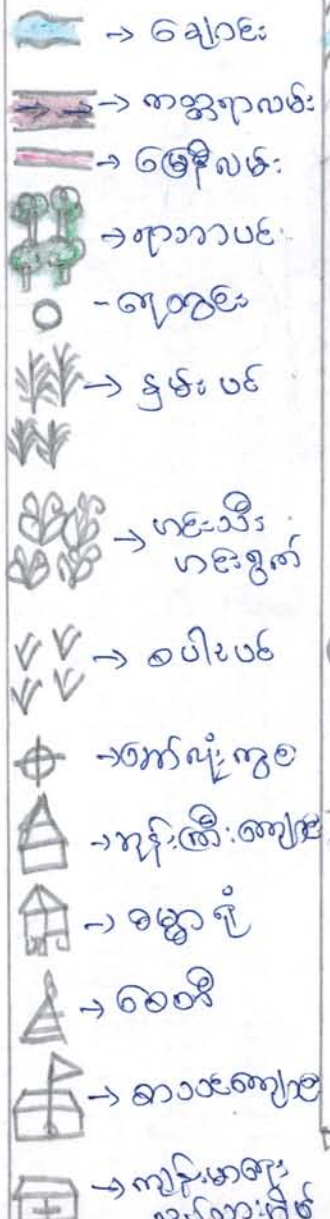 → ချောင်း
→ ကတ္တရာလမ်း
→ မြေနီလမ်း
→ ရာဘာပင်
- ရေတွင်း
→ နှမ်းပင်
→ ဟင်းသီး
ဟင်းရွက်
→ စပါးပင်
→ ဘော်လုံးကွင်း
→ ဘုန်းကြီးကျောင်း
→ ဓမ္မာရုံ
→ စေတီ
→ စာသင်ကျောင်း
→ ကျန်းမာရေး